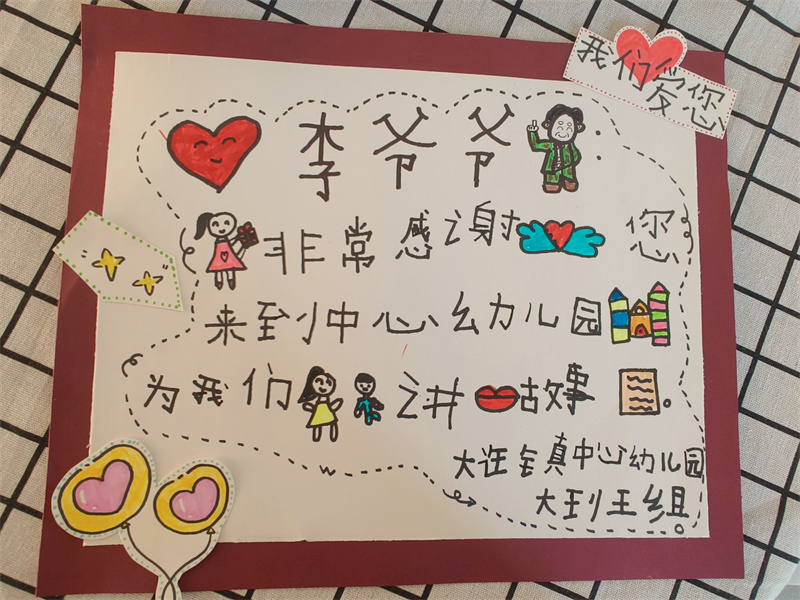 我们爱您
李爷爷
非常感谢您
来到中心幼儿园
为我们讲故事。
大镇中心幼儿园
大班组